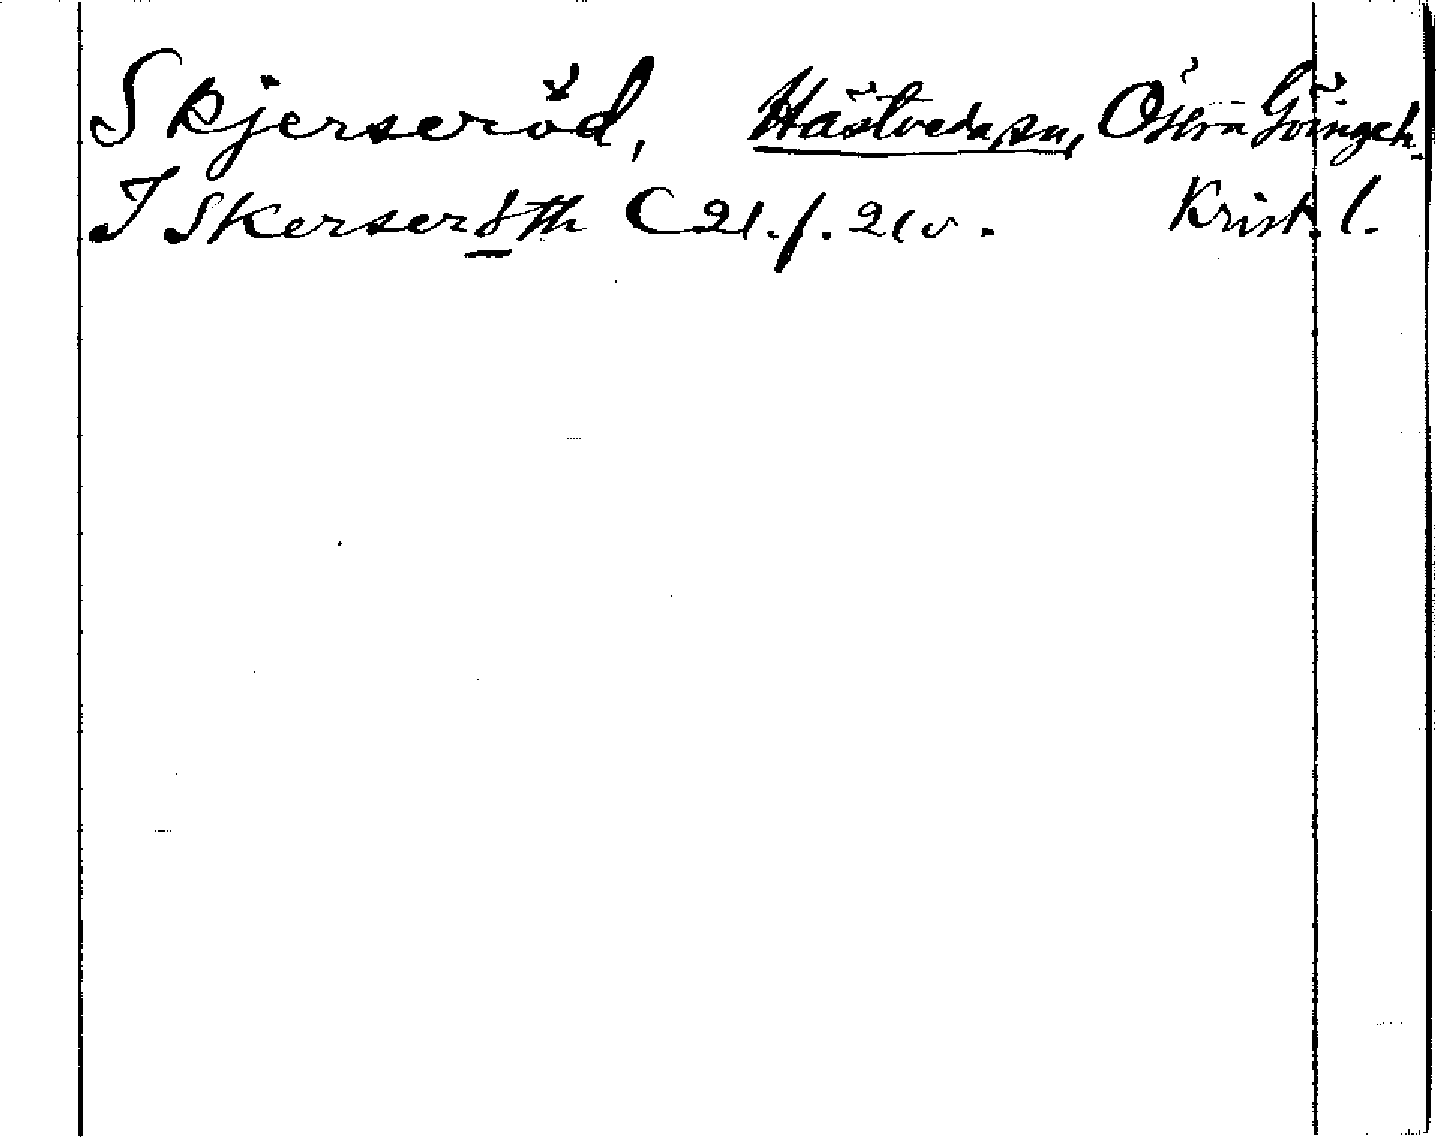 Skjerseröd, Hästveda sn, Östra Göinge h.
I Skerserøth C 21. f. 21 v. Krist. l.